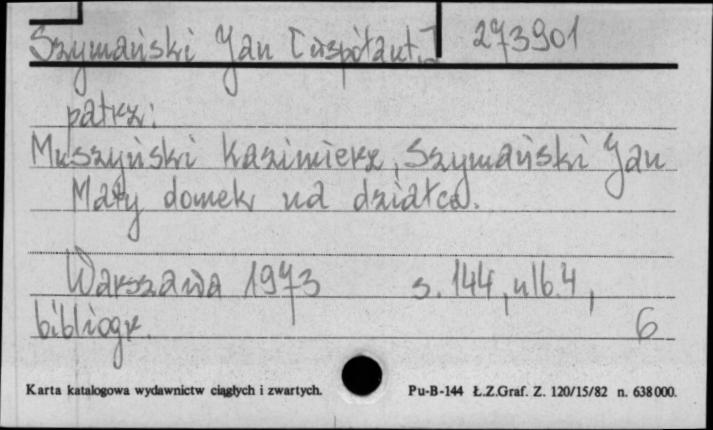 Szymański Jan [współaut.] 273901
patrz:
Muszyński Kazimierz, Szymański Jan
Mały domek na działce.
Warszawa 1973 s. 144, nlb. 4,
bibliogr. 6
Karta katalogowa wydawnictw ciągłych i zwartych. Pu-B-144 Ł.Z.Graf. Z. 120/15/82 n. 638000.